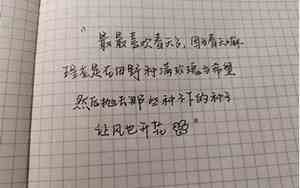 "最最喜欢春天了，因为春天嘛
理应是在田野种满玫瑰与希望
然后抛去那些种下的种子
让风也开花"